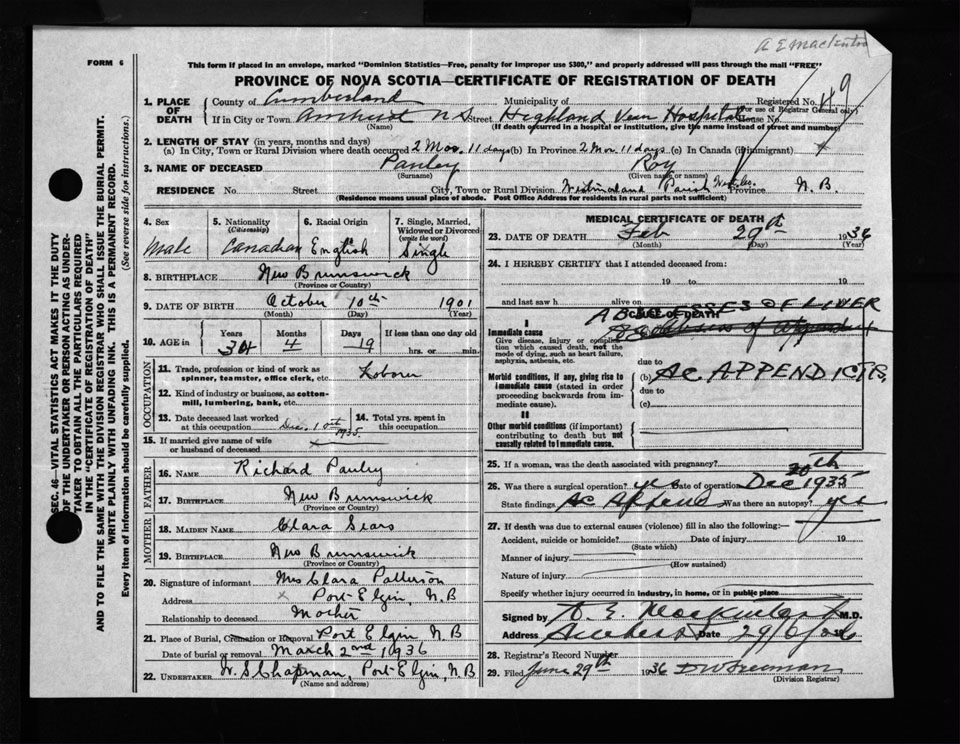 A E Mackintosh
FORM 6
This form if placed in an envelope, marked "Dominion Statistics—Free, penalty for improper use $300," and properly addressed will pass through the mail "FREE"
PROVINCE OF NOVA SCOTIA—CERTIFICATE OF REGISTRATION OF DEATH
SEC. 46—VITAL STATISTICS ACT MAKES IT THE DUTY
OF THE UNDERTAKER OR PERSON ACTING AS UNDER-
TAKER TO OBTAIN ALL THE PARTICULARS REQUIRED
IN THE "CERTIFICATE OF REGISTRATION OF DEATH"
AND TO FILE THE SAME WITH THE DIVISION REGISTRAR WHO SHALL ISSUE THE BURIAL PERMIT.
WRITE PLAINLY WITH UNFADING INK. THIS IS A PERMANENT RECORD.
Every item of information should be carefully supplied. (See reverse side for instructions.)
1. PLACE OF DEATH County of Cumberland Municipality of Registered No. 49
(For use of Registrar General only)
If in City or Town Amherst N S Street Highland View Hospital House No.
(Name) (If death occurred in a hospital or institution, give the name instead of street and number)
2. LENGTH OF STAY (in years, months and days)
(a) In City, Town or Rural Division where death occurred 2 Mos. 11 days (b) In Province 2 Mos. 11 days (c) In Canada (if immigrant)
3. NAME OF DECEASED Pauley Roy
(Surname) (Given name or names)
RESIDENCE No. Street City, Town or Rural Division Westmorland Parish Province N. B.
(Residence means usual place of abode. Post Office Address for residents in rural parts not sufficient)
4. Sex Male
5. Nationality (Citizenship) Canadian
6. Racial Origin English
7. Single, Married, Widowed or Divorced (write the word) Single
8. BIRTHPLACE New Brunswick
(Province or Country)
9. DATE OF BIRTH October 10th 1901
(Month) (Day) (Year)
10. AGE in Years 34 Months 4 Days 19 If less than one day old hrs. or min.
OCCUPATION
11. Trade, profession or kind of work as spinner, teamster, office clerk, etc. Laborer
12. Kind of industry or business, as cotton-mill, lumbering, bank, etc.
13. Date deceased last worked at this occupation Dec. 1st 1935
14. Total yrs. spent in this occupation
15. If married give name of wife or husband of deceased
FATHER
16. NAME Richard Pauley
17. BIRTHPLACE New Brunswick
(Province or Country)
MOTHER
18. MAIDEN NAME Clara Sears
19. BIRTHPLACE New Brunswick
(Province or Country)
20. Signature of informant Mrs Clara Patterson
Address Port Elgin, N.B
Relationship to deceased Mother
21. Place of Burial, Cremation or Removal Port Elgin N B
Date of burial or removal March 2nd 1936
22. UNDERTAKER W. S Chapman, Port Elgin, N B
(Name and address)
MEDICAL CERTIFICATE OF DEATH
23. DATE OF DEATH Feb 29th 1936
(Month) (Day) (Year)
24. I HEREBY CERTIFY that I attended deceased from:
19 to 19
and last saw h alive on
CAUSE OF DEATH
ABCESSES OF LIVER
I
Immediate cause
Give disease, injury or complication which caused death, not the mode of dying, such as heart failure, asphyxia, asthenia, etc.
due to
Morbid conditions, if any, giving rise to immediate cause (stated in order proceeding backwards from immediate cause).
(b) AC APPENDICTIS,
due to
(c)
II
Other morbid conditions (if important) contributing to death but not causally related to immediate cause.
25. If a woman, was the death associated with pregnancy?
26. Was there a surgical operation? yes Date of operation Dec 20th 1935
State findings Ac Append Was there an autopsy? yes
27. If death was due to external causes (violence) fill in also the following:—
Accident, suicide or homicide? Date of injury 19
(State which)
Manner of injury
(How sustained)
Nature of injury
Specify whether injury occurred in industry, in home, or in public place
Signed by A. E. Mackintosh M.D.
Address Amherst Date 29/6/36
28. Registrar's Record Number
29. Filed June 29th 1936 D W Freeman
(Division Registrar)